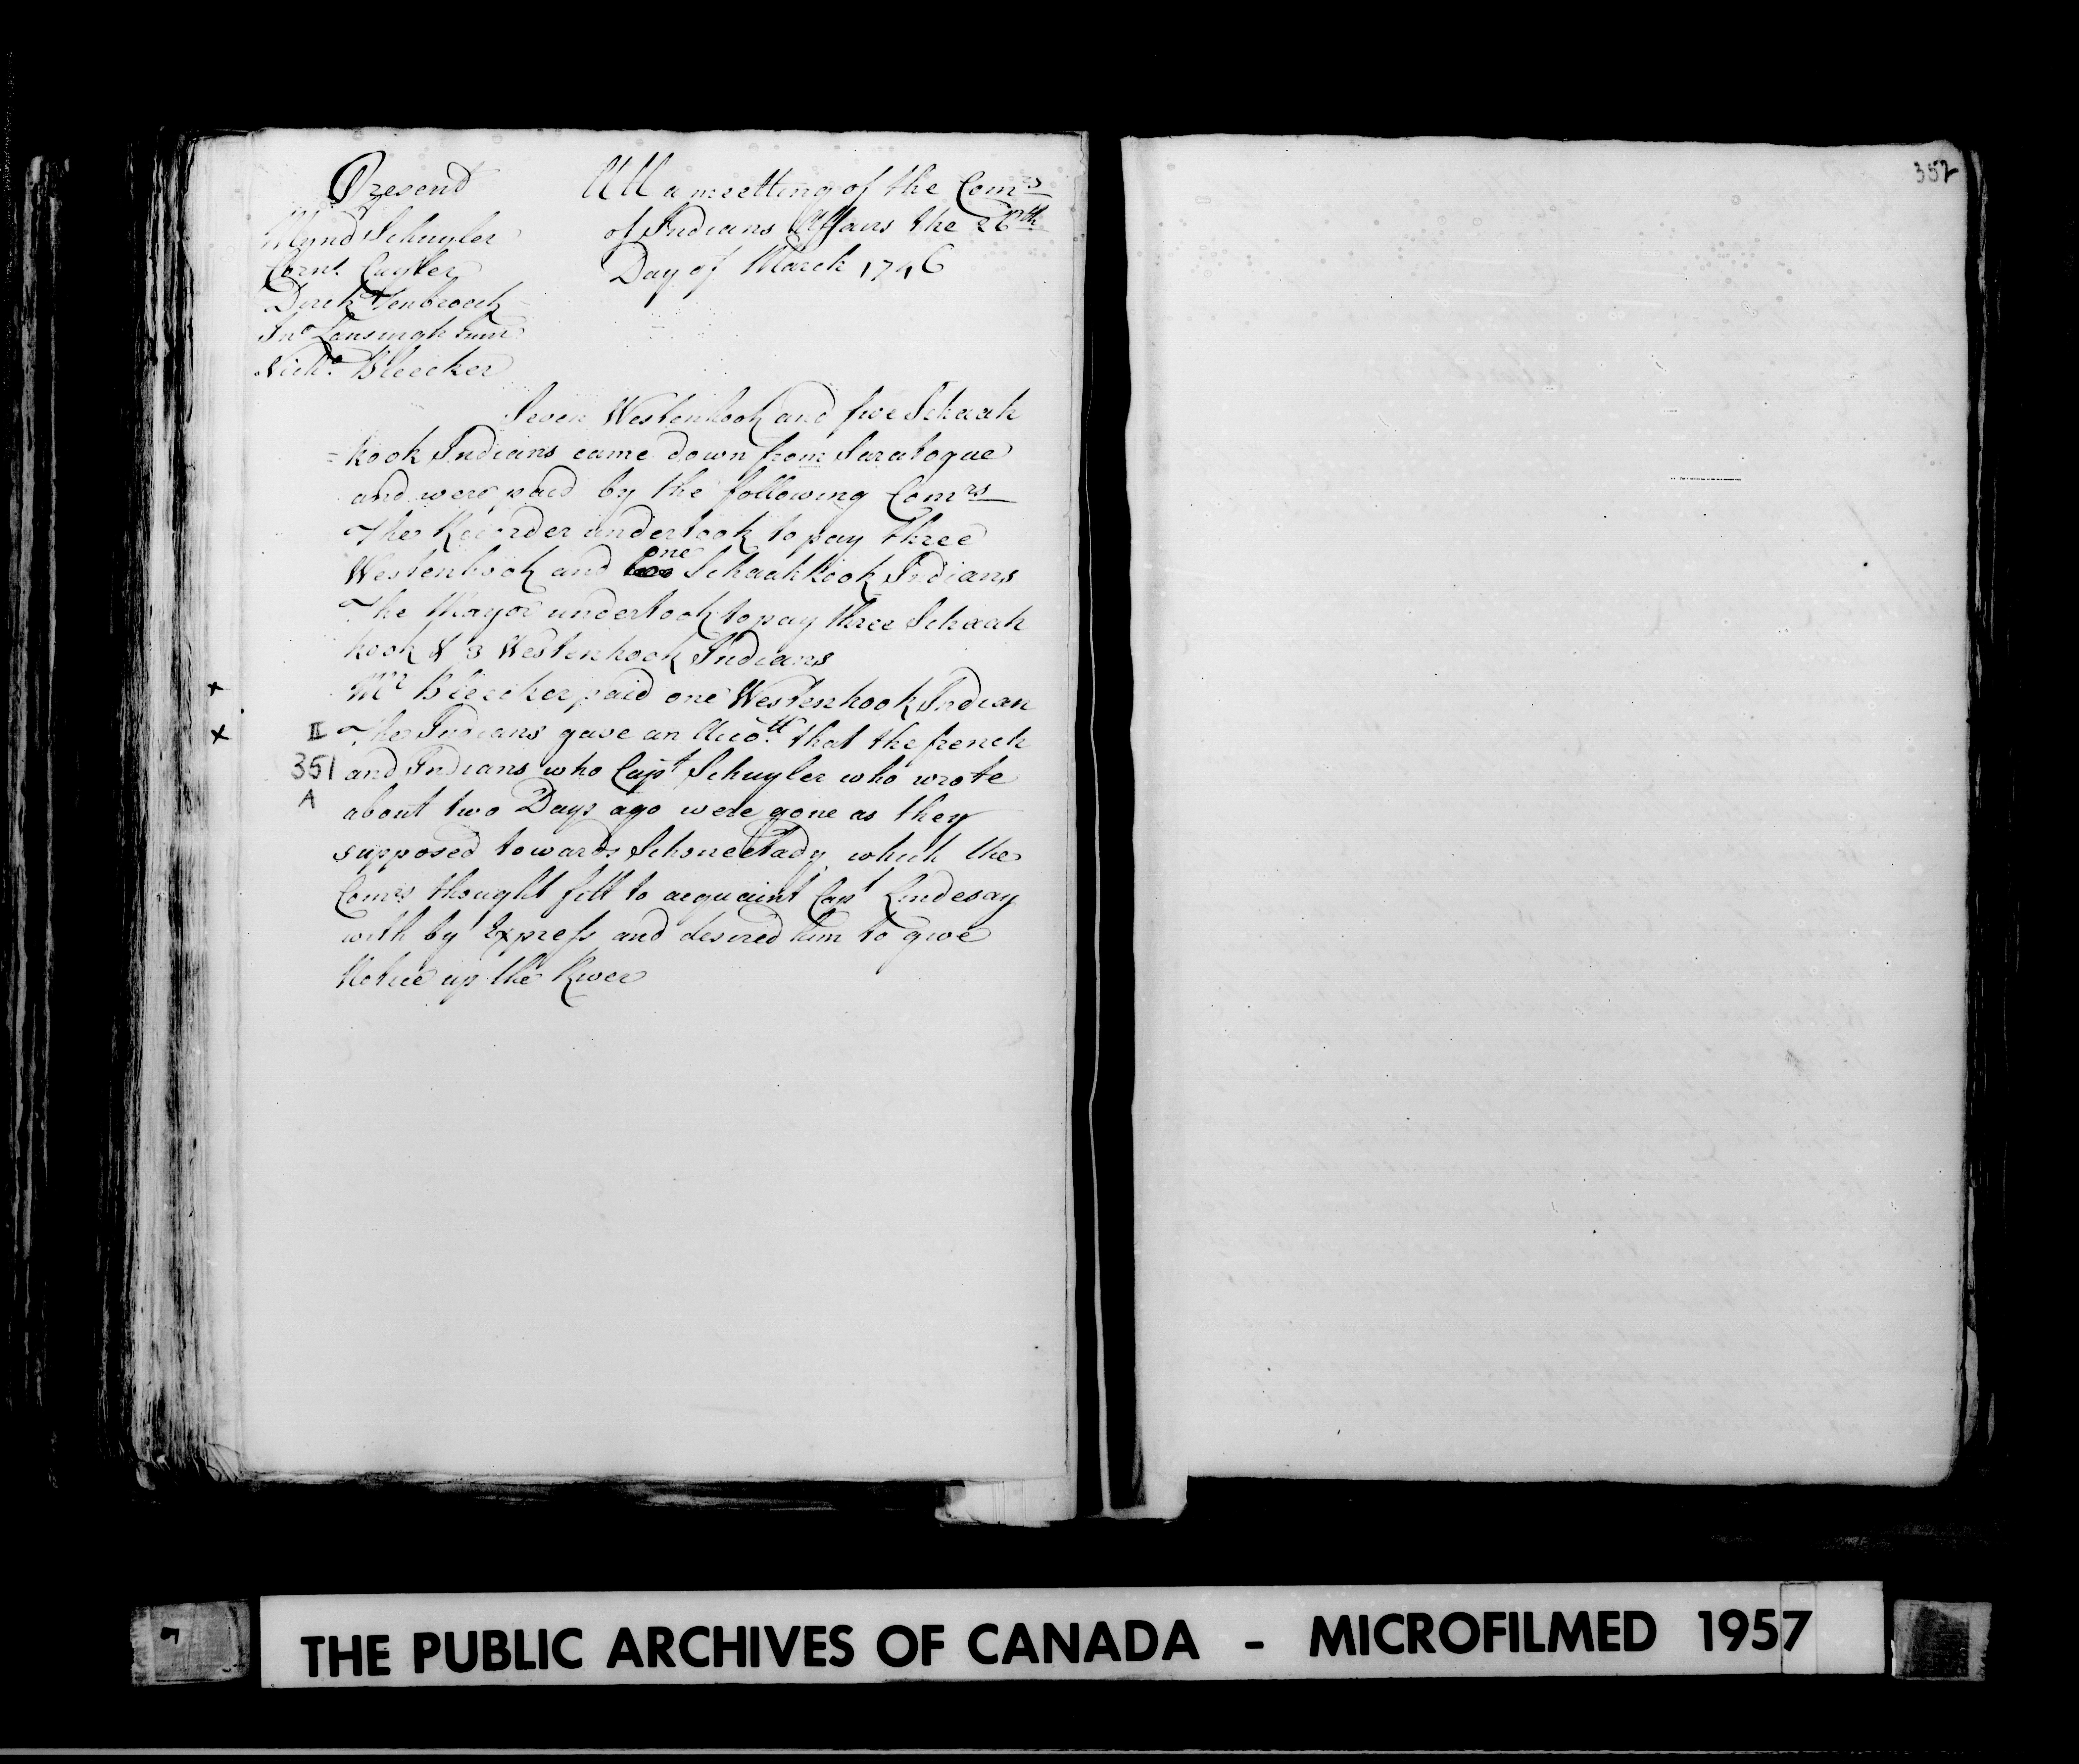 352
Present
Mynd Schuyler
Cornl. Cuyler
Dirck Tenbroeck
Jno Lansingh Junr
Nichs. Bleecker
Att a meetting of the Comrs
of Indians Affairs the 26th
Day of March 1746
Seven Westenhook and five Schaah
= kook Indians came down from Saratogue
and were paid by the following Comrs
The Recorder undertook to pay three
Westenhook and one Schaahkook Indians
The Mayor undertook to pay three Schaah
kook & 3 Westenhook Indians
Mr Bleecker paid one Westenhook Indian
The Indians gave an Acco.tt that the french
and Indians who Capt Schuyler who wrote
about two Days ago were gone as they
supposed towards Schonectady which the
Comrs thought fitt to acquaint Capt Lindesay
with by Express and desired him to give
Notice up the River
x
x
II
351
A
THE PUBLIC ARCHIVES OF CANADA - MICROFILMED 1957